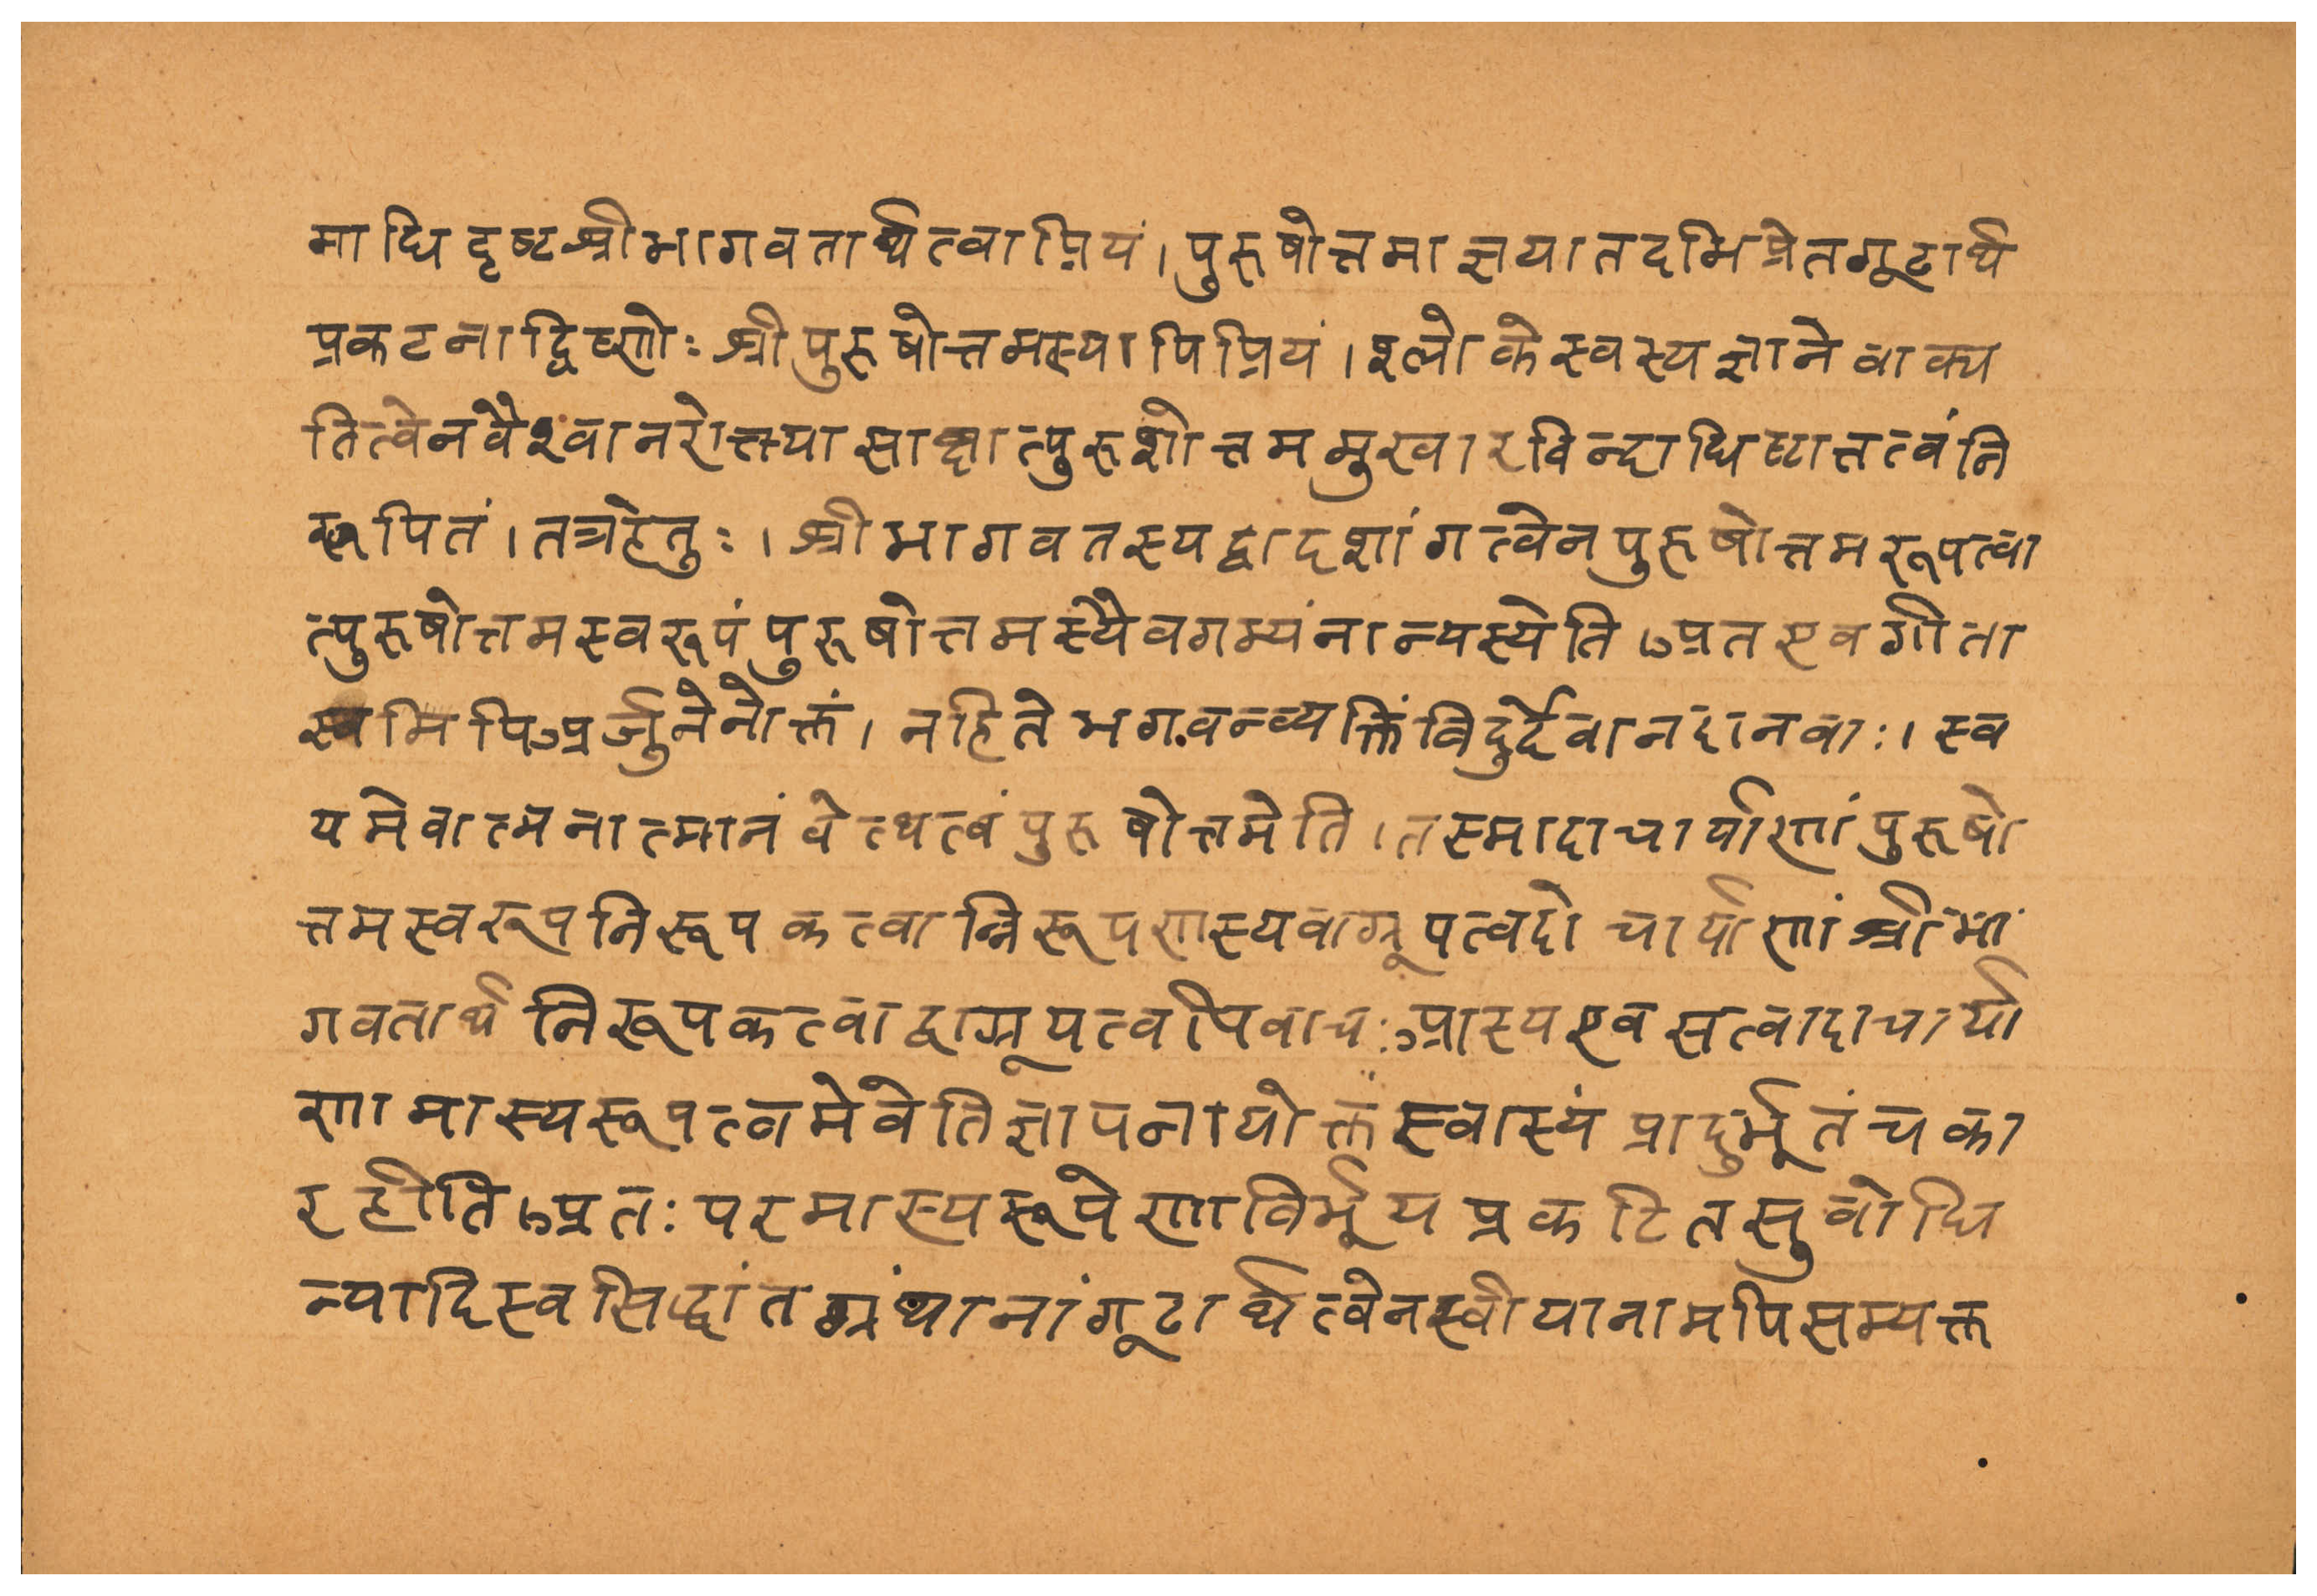 माधिदृष्टश्रीभागवतार्थत्वाप्रियं।पुरुषोत्तमाज्ञयातदभिप्रेतगूढार्थ
प्रकटनाद्विष्णोः श्रीपुरुषोत्तमस्यापिप्रियं।श्लोकेस्वस्यज्ञानेवाक्य
तित्वेनवैश्वानरोक्त्यासाक्षात्पुरुशोत्तममुखारविन्दाधिष्टात्तत्वंनि
रूपितं।तत्रहेतुः।श्रीभागवतस्यद्वादशांगत्वेनपुरुषोत्तमरूपत्वा
त्पुरुषोत्तमस्वरूपंपुरुषोत्तमस्यैवगम्यंनान्यस्येतिअतएवगीता
स्वमिपिअर्जुनेनोक्तं।नहितेभगवन्व्यक्तिंविदुर्देवानदानवाः।स्व
यमेवात्मनात्मानंवेत्थत्वंपुरुषोत्तमेति।तस्मादाचार्याणांपुरुषो
त्तमस्वरूपनिरूपकत्वान्निरूपणस्यवाग्रूपत्वदोचार्याणांश्रीभा
गवतार्थनिरूपकत्वाद्वाग्रूपत्वपिवाचःआस्यएवसत्वादाचार्या
णामास्यरूपत्वमेवेतिज्ञापनायोक्तंस्वास्यंप्रादुर्भूतंचका
रहीतिअतःपरमास्यरूपेणाविर्भूयप्रकटितसुबोधि
न्यादिस्वसिद्धांतग्रंथानांगूढार्थत्वेनस्वीयानामपिसम्यक्त